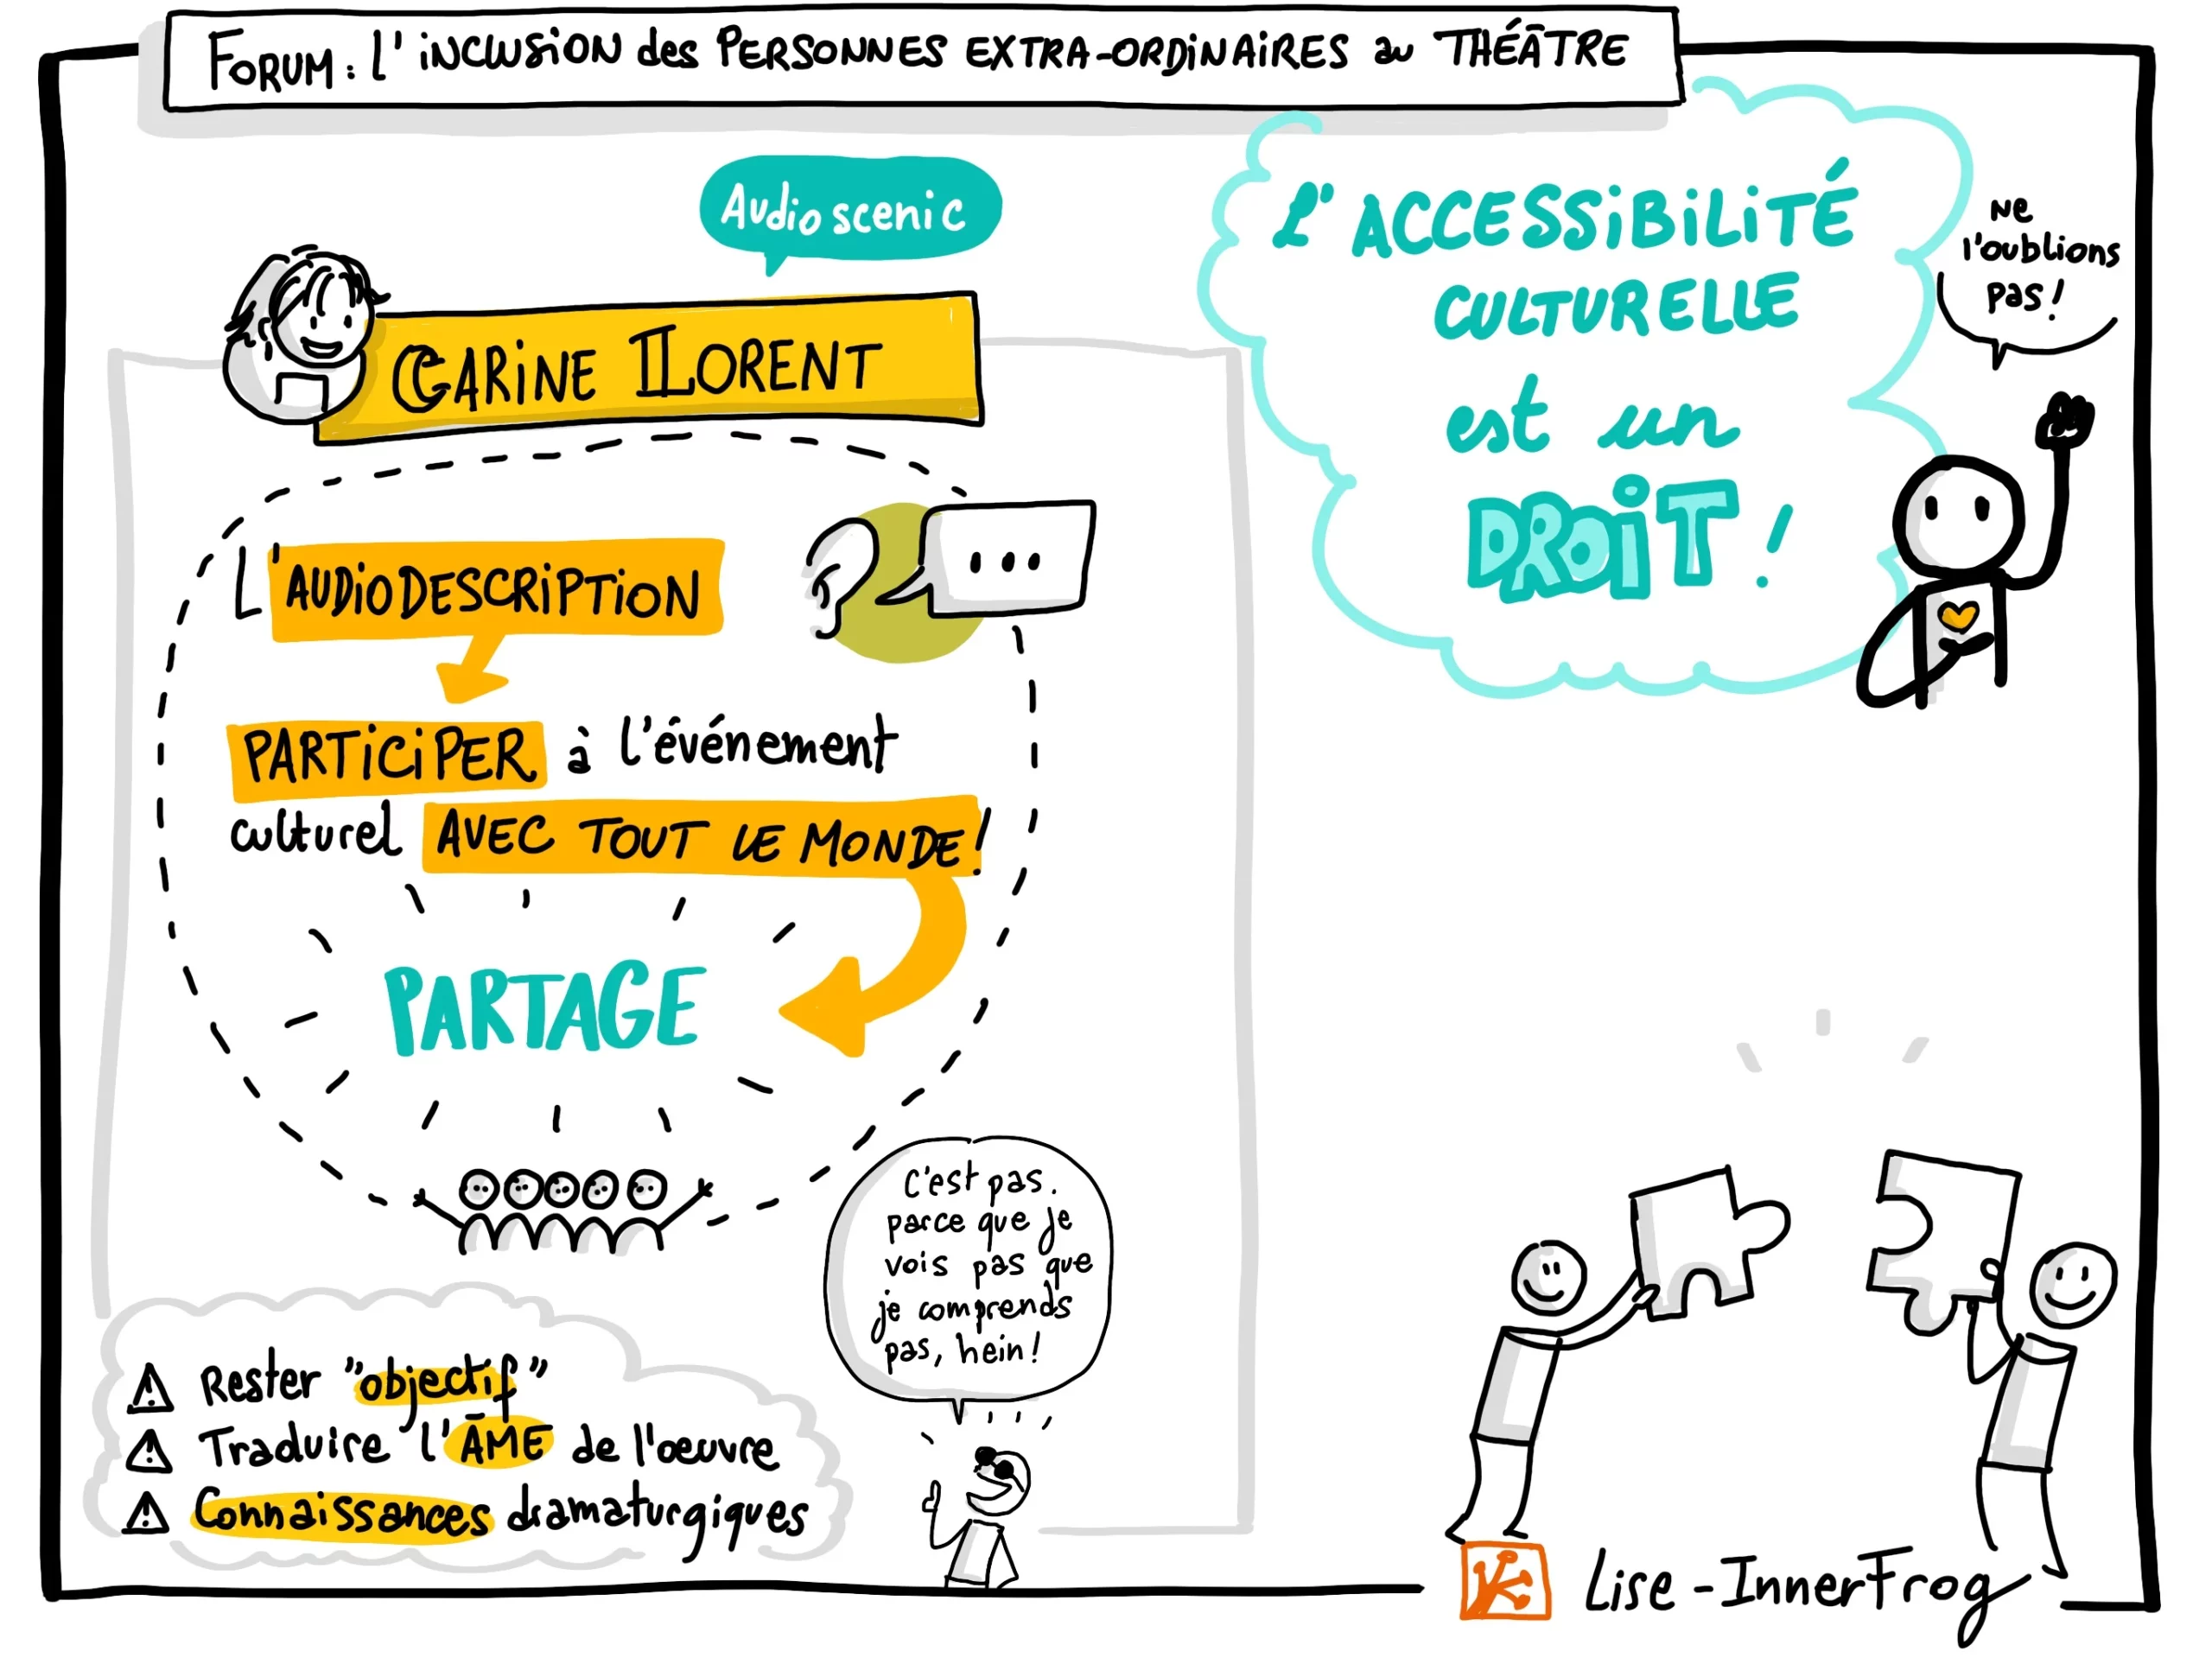 FORUM : L'INCLUSION des PERSONNES EXTRA-ORDINAIRES au THÉÂTRE
Audioscenic
CARINE LLORENT
L'AUDIODESCRIPTION
...
PARTICIPER à l'événement
culturel AVEC TOUT LE MONDE !
PARTAGE
C'est pas
parce que je
vois pas que
je comprends
pas, hein !
⚠ Rester "objectif"
⚠ Traduire l'ÂME de l'œuvre
⚠ Connaissances dramaturgiques
L'ACCESSIBILITÉ
CULTURELLE
est un
DROIT !
Ne
l'oublions
pas !
Lise - InnerFrog